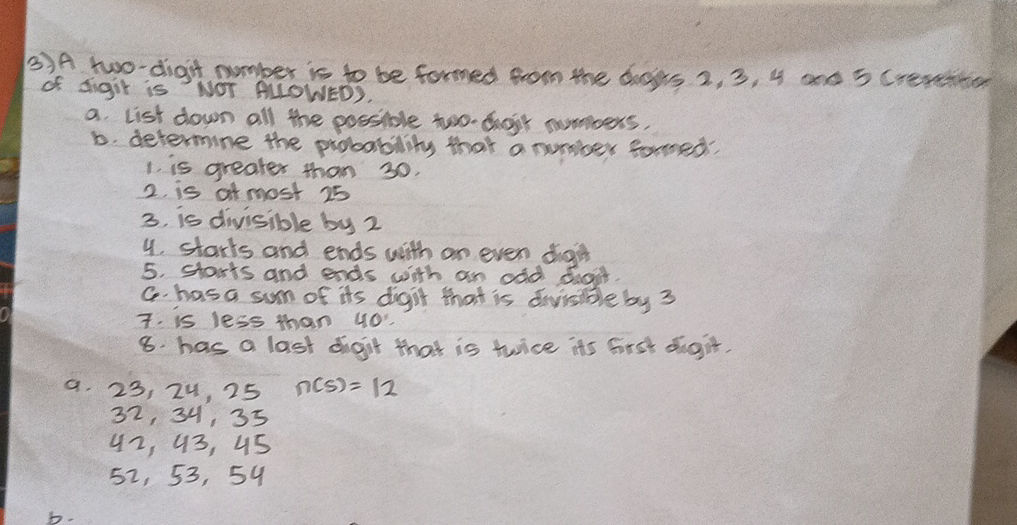 3) A two-digit number is to be formed from the digits 2, 3, 4 and 5 (repetition
of digit is NOT ALLOWED).
a. List down all the possible two-digit numbers.
b. determine the probability that a number formed:
1. is greater than 30.
2. is at most 25
3. is divisible by 2
4. starts and ends with an even digit
5. starts and ends with an odd digit.
6. has a sum of its digit that is divisible by 3
7. is less than 40.
8. has a last digit that is twice its first digit.
a. 23, 24, 25 n(S) = 12
32, 34, 35
42, 43, 45
52, 53, 54
b.